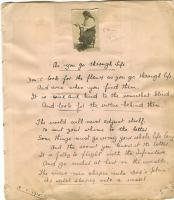 As you go through life
Don't look for the flaws as you go through life
And even when you find them
It is wise and kind to be somewhat blind
And look for the virtue behind them
The world will never adjust itself
To suit your whims to the letter
Some things must go wrong your whole life long
And the sooner you know it the better
It is folly to fight with the Infinite
And go under at last in the wrestle
The wiser man shapes into God's plan
As water shapes into a vessel